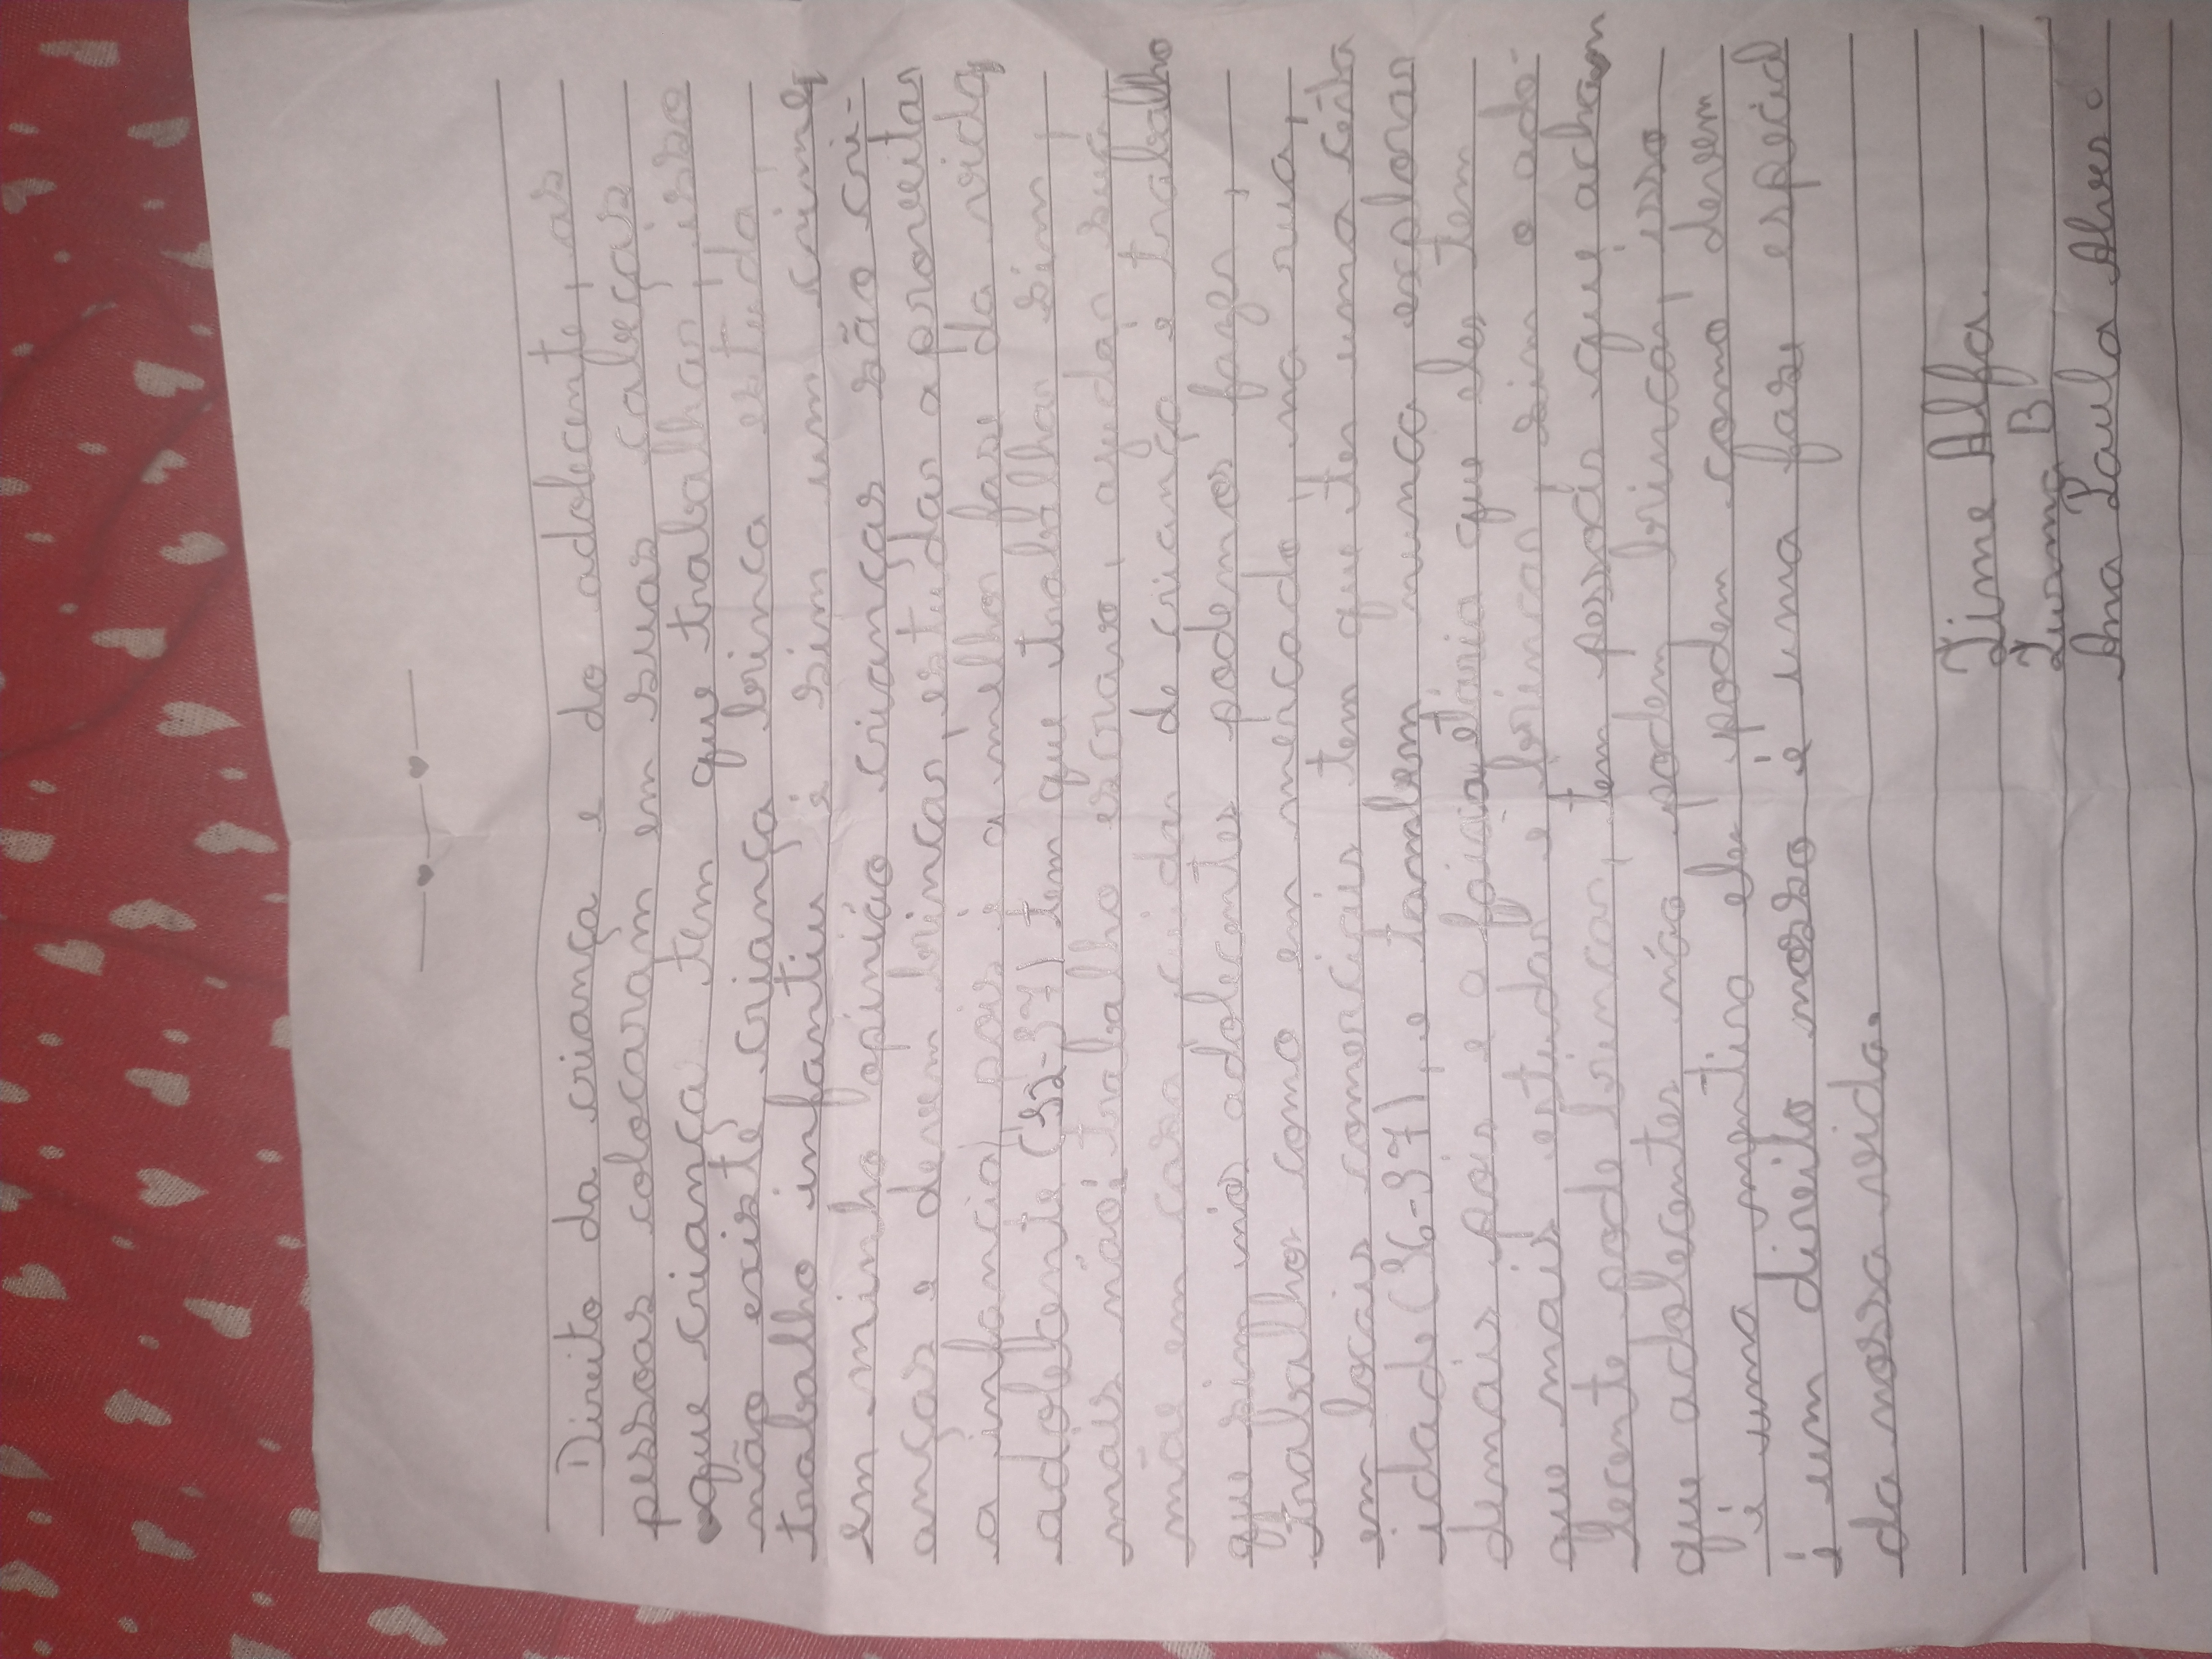 Direito da criança e do adolecente, as
pessoas colocaram em suas cabeças
que criança tem que trabalhar, isso
não existe, criança brinca estuda,
trabalho infantiu é sim um crime,
em minha opinião crianças são cri-
anças e devem brincar, estudar aproveitar
a infancia, pois é a melhor fase da vida,
adolecente (12-17) tem que trabalhar sim,
mais não trabalho escravo, ajudar sua
mãe em casa, cuidar de criança é trabalho
que sim nós adolecentes podemos fazer,
trabalhor como em mercado, na rua,
em locais comerciais tem que ter uma certa
idade (16-17), e tambem nunca explorar
demais pois e a faixa etária que eles tem
que mais estudar e brincar, sim o ado-
lecente pode brincar, tem pessoas que acham
que adolecentes não podem brincar, isso
é uma mentira eles podem como devem
é um direito nosso é uma fase especial
da nossa vida.
Time Alfa.
Turma B
Ana Paula Alves